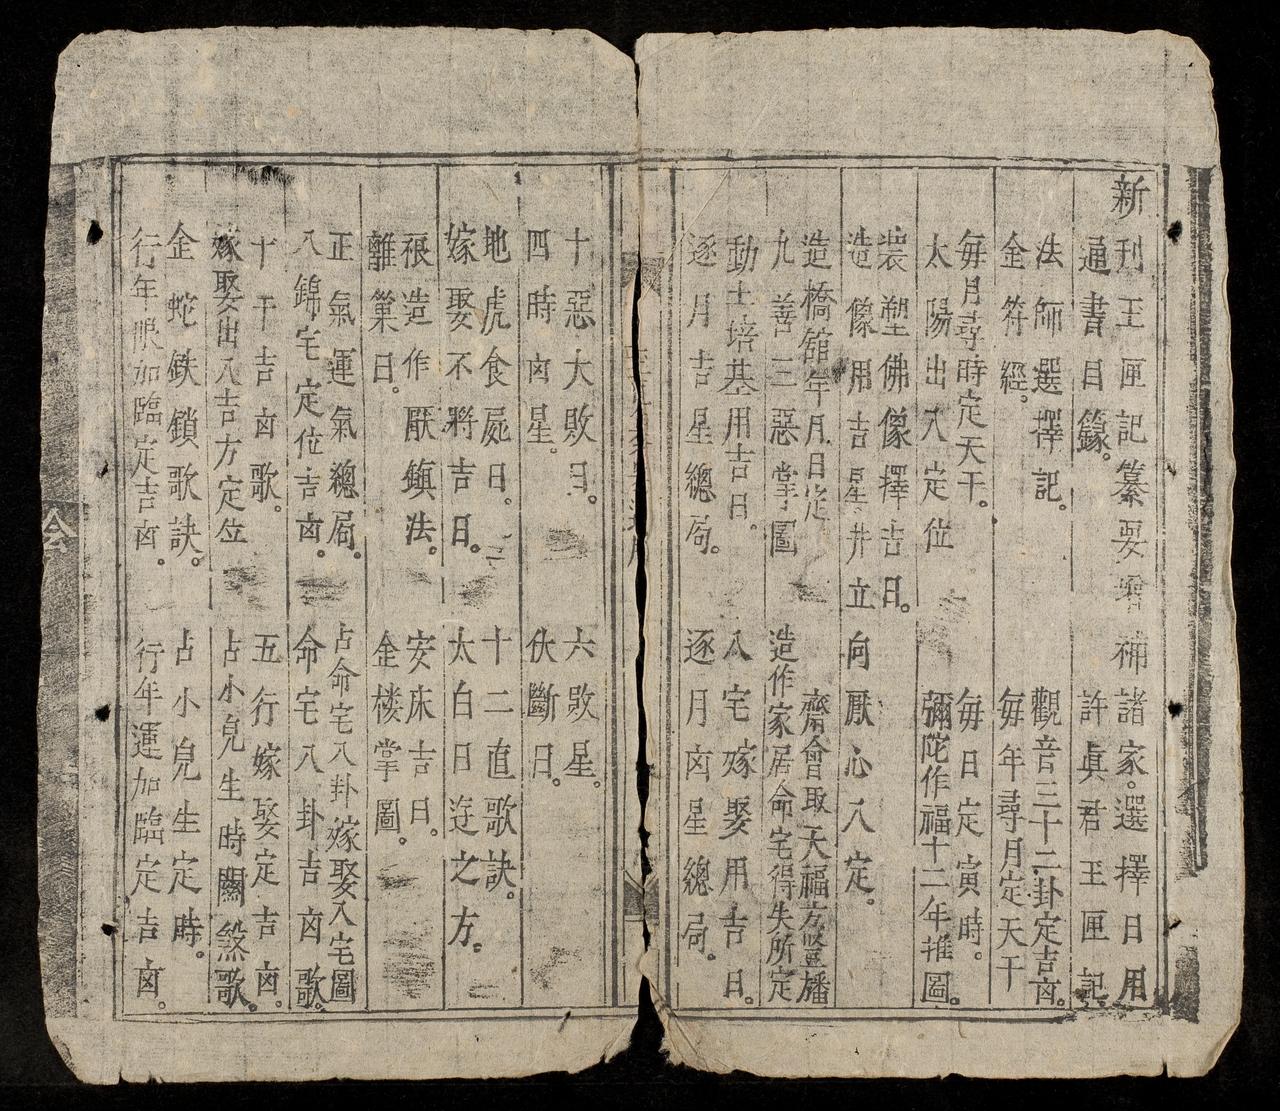 新刊玉匣記纂要增補諸家選擇日用
通書目錄。 許眞君玉匣記
法師選擇記 觀音三十二卦定吉凶。
金符經。 每年尋月定天干
每月尋時定天干。 每日定寅時。
太陽出入定位 彌陀作福十二年推圖。
裝塑佛像擇吉日。
造像用吉星井立向厭心入定。
造橋舘年月日定 齋會取大福方竪旛
九善三惡掌圖 造作家居命宅得失所定
動土培基用吉日。 八宅嫁娶用吉日。
逐月吉星總局。 逐月凶星總局。
十惡大敗日。 六敗星。
四時凶星。 伏斷日。
地虎食屍日。 十二直歌訣。
嫁娶不將吉日。 太白日迍之方。
裉造作厭鎮法。 安床吉日。
離巢日。 金楼掌圖。
正氣運氣總局。 占命宅八卦嫁娶入宅圖
八錦宅定位吉凶。 命宅八卦吉凶歌。
十干吉凶歌。 五行嫁娶定吉凶。
嫁娶出入吉方定位 占小兒生時關煞歌。
金蛇鉄鎖歌訣。 占小兒生定時。
行年限加臨定吉凶。 行年運加臨定吉凶。